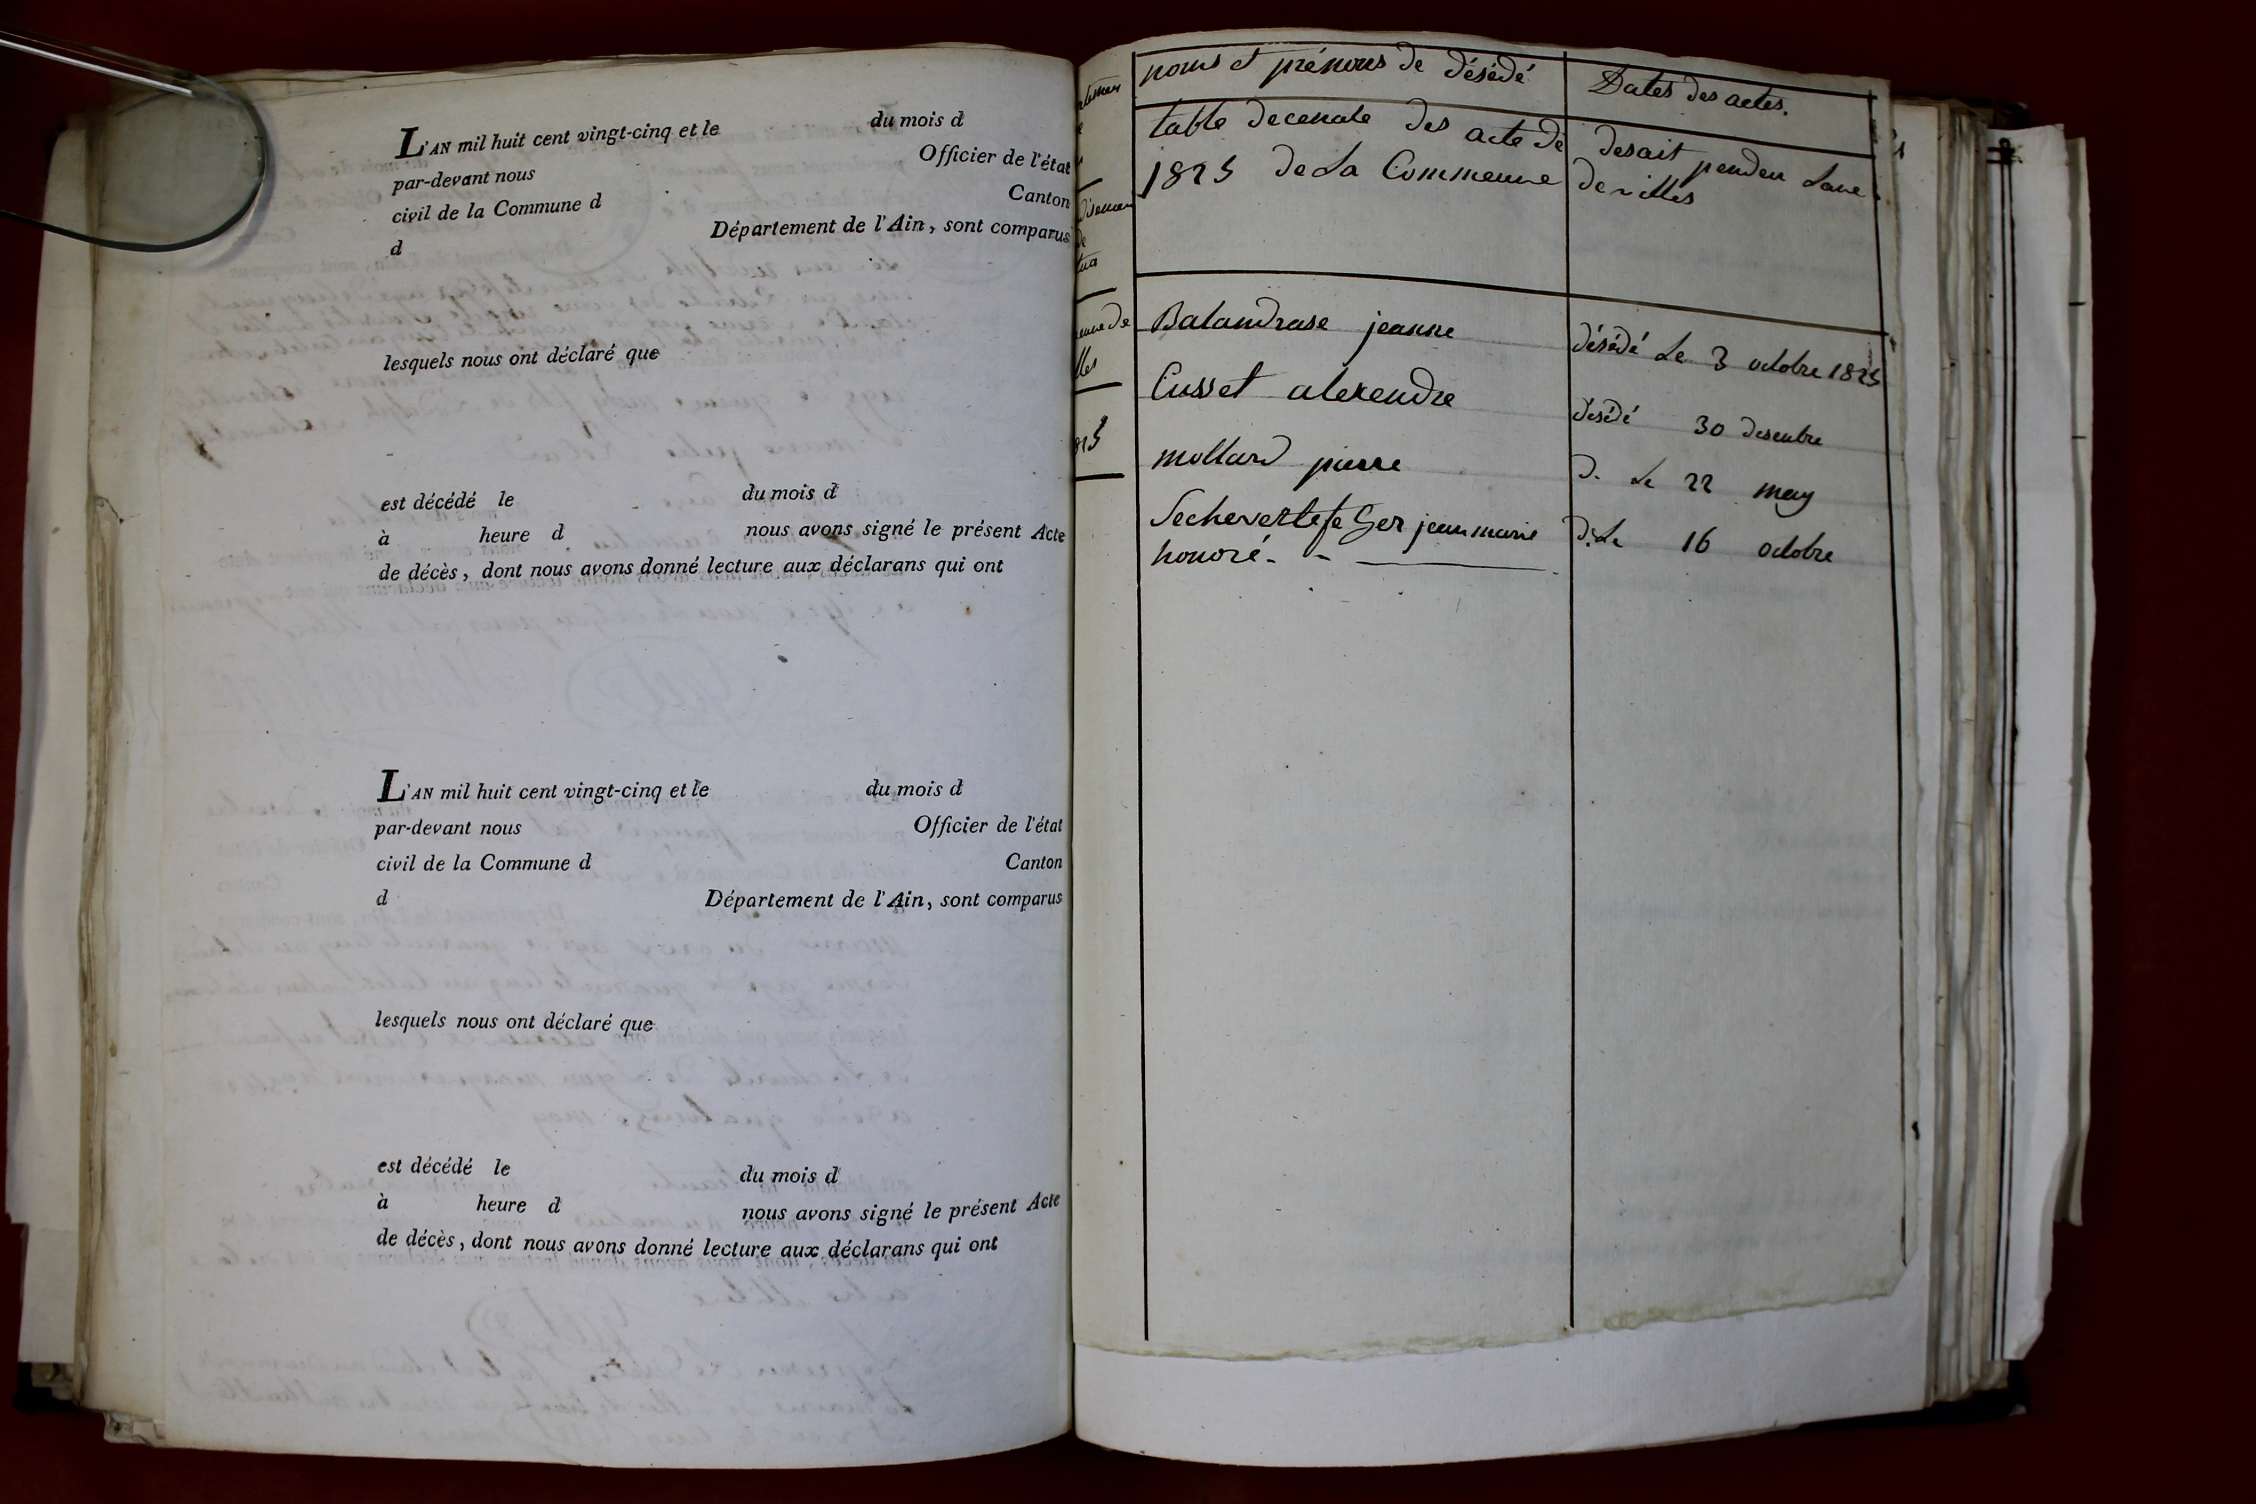 L'AN mil huit cent vingt-cinq et le du mois d
par-devant nous Officier de l'état
civil de la Commune d Canton
d Département de l'Ain, sont comparus
lesquels nous ont déclaré que
est décédé le du mois d
à heure d nous avons signé le présent Acte
de décès, dont nous avons donné lecture aux déclarans qui ont
L'AN mil huit cent vingt-cinq et le du mois d
par-devant nous Officier de l'état
civil de la Commune d Canton
d Département de l'Ain, sont comparus
lesquels nous ont déclaré que
est décédé le du mois d
à heure d nous avons signé le présent Acte
de décès, dont nous avons donné lecture aux déclarans qui ont
noms et prénoms de désédé Dates des actes.
table decenale des acte de desait penden Lane
1825 de La Commeune de villes
Balandrase jeanne désédé Le 3 octobre 1825
Cusset alexendre désédé 30 desenbre
mollard pierre D. Le 22 may
jean marie D. Le 16 octobre
honoré